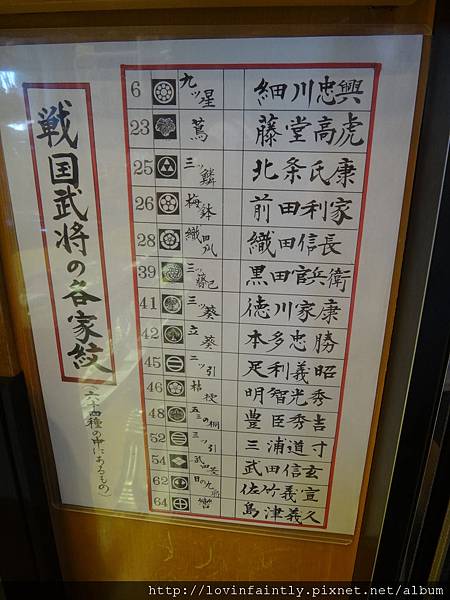 戦国武将の各家紋
(六十四種の中にあるもの)
6 九ッ星 細川忠興
23 蔦 藤堂高虎
25 三ッ鱗 北条氏康
26 梅鉢 前田利家
28 織田瓜 織田信長
39 三ッ藤巴 黒田官兵衛
41 三ッ葵 徳川家康
42 立葵 本多忠勝
45 二ッ引 足利義昭
46 桔梗 明智光秀
48 五三の桐 豊臣秀吉
52 三ッ引 三浦道寸
54 武田菱 武田信玄
62 日の丸扇 佐竹義宣
64 轡 島津義久
http://lovinfaintly.pixnet.net/album